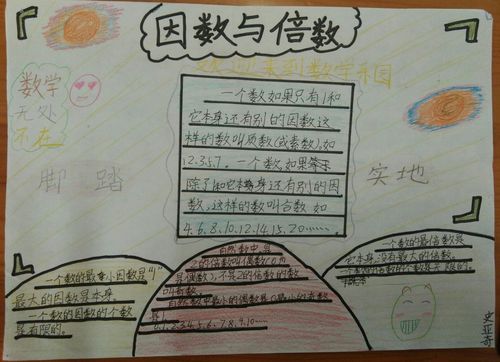 因数与倍数
欢迎来到数学乐园
数学
无处
不在
脚踏
实地
一个数如果只有1和
它本身还有别的因数这
样的数叫质数(或素数),如
1.2.3.5.7.一个数,如果等示
除了1和它本身还有别的因
数,这样的数叫合数 如
4.6.8.10.12.14.15.20……
一个数的最小因数是"1"
最大的因数是本身。
一个数的因数的个数
是有限的。
自然数中是
2的倍数叫偶数(0也
是偶数),不是2的倍数的数
叫奇数。
自然数中最小的偶数是0最小的奇数
是1.
0.1.2.3.4.5.6.7.8.9.10……
一个数的最倍数是
它本身,没有最大的倍数。
史亚奇